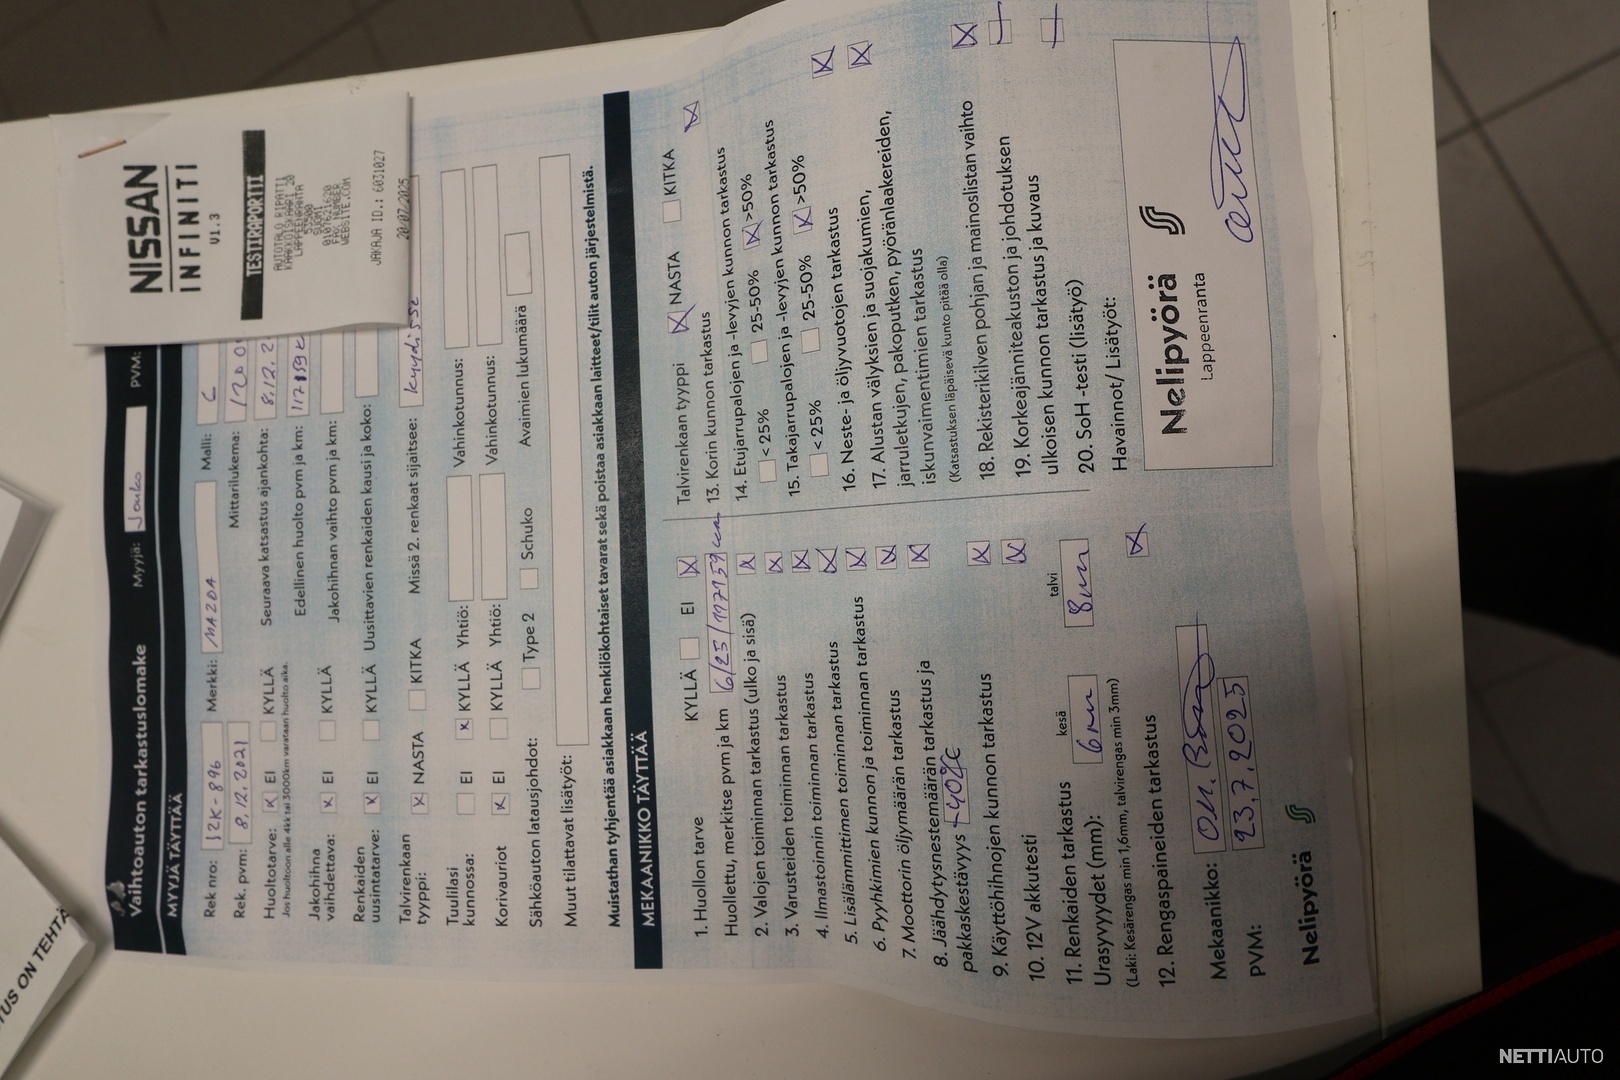 TUS ON TEHTÄ
NISSAN
INFINITI
V1.3
TESTIRAPORTTI
AUTOTALO RIPATTI
KAAKKOISKAARI 20
LAPPEENRANTA
53500
SUOMI
0107621620
FAX NUMBER
WEBSITE.COM
JAKAJA ID.: 6031027
20/07/2025
Vaihtoauton tarkastuslomake Myyjä: Jouko PVM:
MYYJÄ TÄYTTÄÄ
Rek nro: JZK-896 Merkki: MAZDA Malli: 6
Rek. pvm: 8.12.2021 Mittarilukema:
Huoltotarve: x EI KYLLÄ Seuraava katsastus ajankohta: 8.12.2
Jos huoltoon alle 4kk tai 3000km varataan huolto aika. Edellinen huolto pvm ja km:
Jakohihna vaihdettava: x EI KYLLÄ Jakohihnan vaihto pvm ja km:
Renkaiden uusintatarve: x EI KYLLÄ Uusittavien renkaiden kausi ja koko:
Talvirenkaan tyyppi: x NASTA KITKA Missä 2. renkaat sijaitsee: kyydissä
Tuulilasi kunnossa: EI x KYLLÄ Yhtiö: Vahinkotunnus:
Korivauriot x EI KYLLÄ Yhtiö: Vahinkotunnus:
Sähköauton latausjohdot: Type 2 Schuko Avaimien lukumäärä
Muut tilattavat lisätyöt:
Muistathan tyhjentää asiakkaan henkilökohtaiset tavarat sekä poistaa asiakkaan laitteet/tilit auton järjestelmistä.
MEKAANIKKO TÄYTTÄÄ
1. Huollon tarve KYLLÄ EI x
Huollettu, merkitse pvm ja km 6/25/117139km
2. Valojen toiminnan tarkastus (ulko ja sisä) x
3. Varusteiden toiminnan tarkastus x
4. Ilmastoinnin toiminnan tarkastus x
5. Lisälämmittimen toiminnan tarkastus x
6. Pyyhkimien kunnon ja toiminnan tarkastus x
7. Moottorin öljymäärän tarkastus x
8. Jäähdytysnestemäärän tarkastus ja x
pakkaskestävyys -40°C
9. Käyttöhihnojen kunnon tarkastus x
10. 12V akkutesti x
11. Renkaiden tarkastus kesä talvi
Urasyvyydet (mm): 6mm 8mm
(Laki: Kesärengas min 1,6mm, talvirengas min 3mm)
12. Rengaspaineiden tarkastus x
Mekaanikko:
PVM: 23.7.2025
Nelipyörä
Talvirenkaan tyyppi x NASTA KITKA
13. Korin kunnon tarkastus x
14. Etujarrupalojen ja -levyjen kunnon tarkastus
<25% 25-50% x >50%
15. Takajarrupalojen ja -levyjen kunnon tarkastus
<25% 25-50% x >50%
16. Neste- ja öljyvuotojen tarkastus x
17. Alustan välyksien ja suojakumien, x
jarruletkujen, pakoputken, pyöränlaakereiden,
iskunvaimentimien tarkastus
(Katsastuksen läpäisevä kunto pitää olla)
18. Rekisterikilven pohjan ja mainoslistan vaihto x
19. Korkeajänniteakuston ja johdotuksen
ulkoisen kunnon tarkastus ja kuvaus
20. SoH -testi (lisätyö)
Havainnot/ Lisätyöt:
Nelipyörä
Lappeenranta
NETTIAUTO